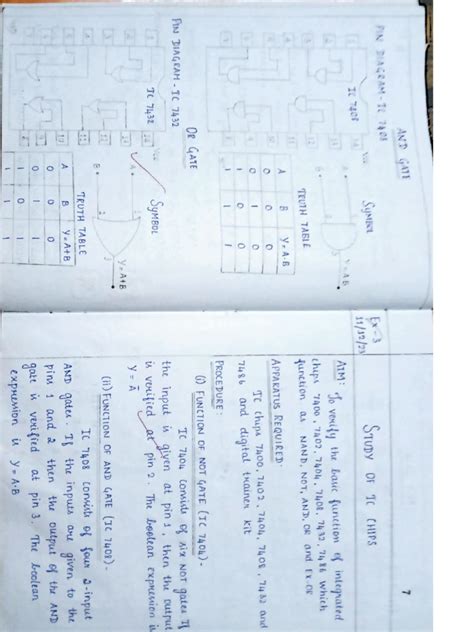 AND GATE
PIN DIAGRAM - IC 7408
SYMBOL
IC 7408
Vcc
Y=A.B
TRUTH TABLE
A B Y=A.B
0 0 0
0 1 0
1 0 0
1 1 1
OR GATE
PIN DIAGRAM - IC 7432
SYMBOL
IC 7432
Vcc
A
B
Y=A+B
TRUTH TABLE
A B Y=A+B
0 0 0
0 1 1
1 0 1
1 1 1
7
Ex-3
STUDY OF IC CHIPS
AIM: To verify the basic function of integrated
chips 7400, 7402, 7404, 7408, 7432, 7486 which
function as NAND, NOT, AND, OR and EX-OR
APPARATUS REQUIRED:
IC chips 7400, 7402, 7404, 7408, 7432 and
7486 and digital trainer kit
PROCEDURE:
(i) FUNCTION OF NOT GATE (IC 7404) -
IC 7404 consists of six NOT gates If
the input is given at pin 1, then the output
is verified at pin 2. The boolean expression is
Y = A̅
(ii) FUNCTION OF AND GATE (IC 7408) -
IC 7408 consists of four 2-input
AND gates. If the inputs are given to the
pins 1 and 2 then the output of the AND
gate is verified at pin 3. The boolean
expression is Y = A.B